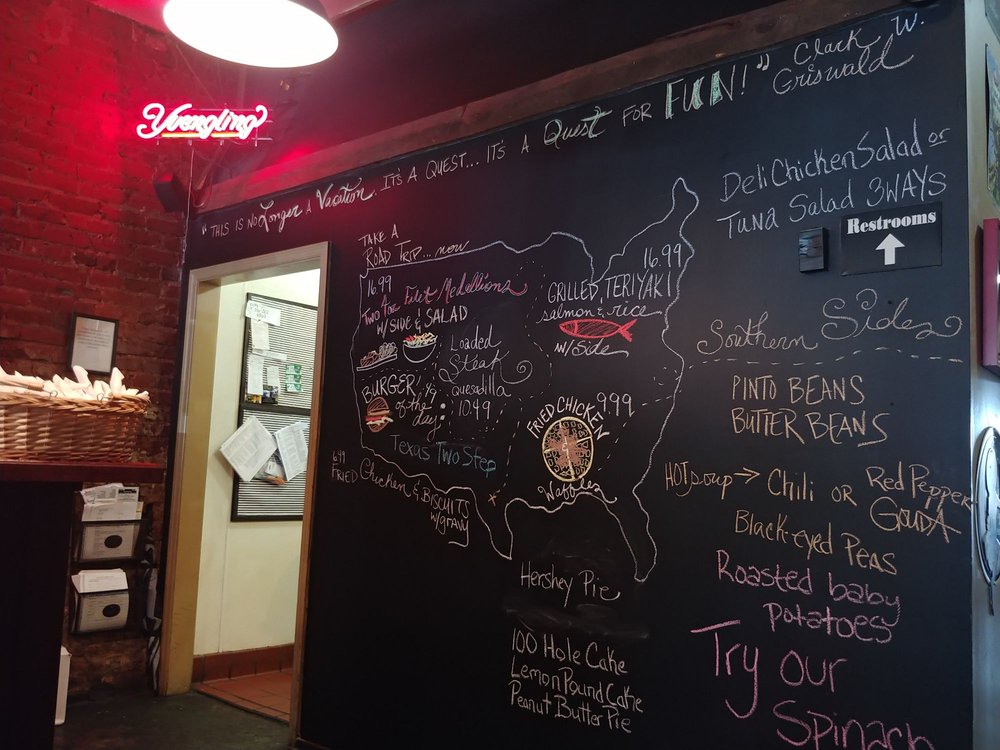 Yuengling
"THIS IS NO Longer A Vacation. IT'S A QUEST... IT'S A Quest FOR FUN!"
Clark W.
Griswald
Deli Chicken Salad or
Tuna Salad 3WAYS
Restrooms
TAKE A
ROAD TRIP... now
16.99
Two For Filet Medallions
w/SIDE & SALAD
Loaded
Steak
quesadilla
10.49
BURGER
of the
day
Texas Two Step
6.99
FRIED Chicken & BISCUITS
w/gravy
16.99
GRILLED, TERIYAKI
salmon & rice
w/Side
FRIED CHICKEN
9.99
Waffles
Hershey Pie
100 Hole Cake
Lemon Pound Cake
Peanut Butter Pie
Southern Sides
PINTO BEANS
BUTTER BEANS
HOT soup → Chili OR Red Pepper
GOUDA
Black-eyed Peas
Roasted baby
potatoes
Try our
Spinach